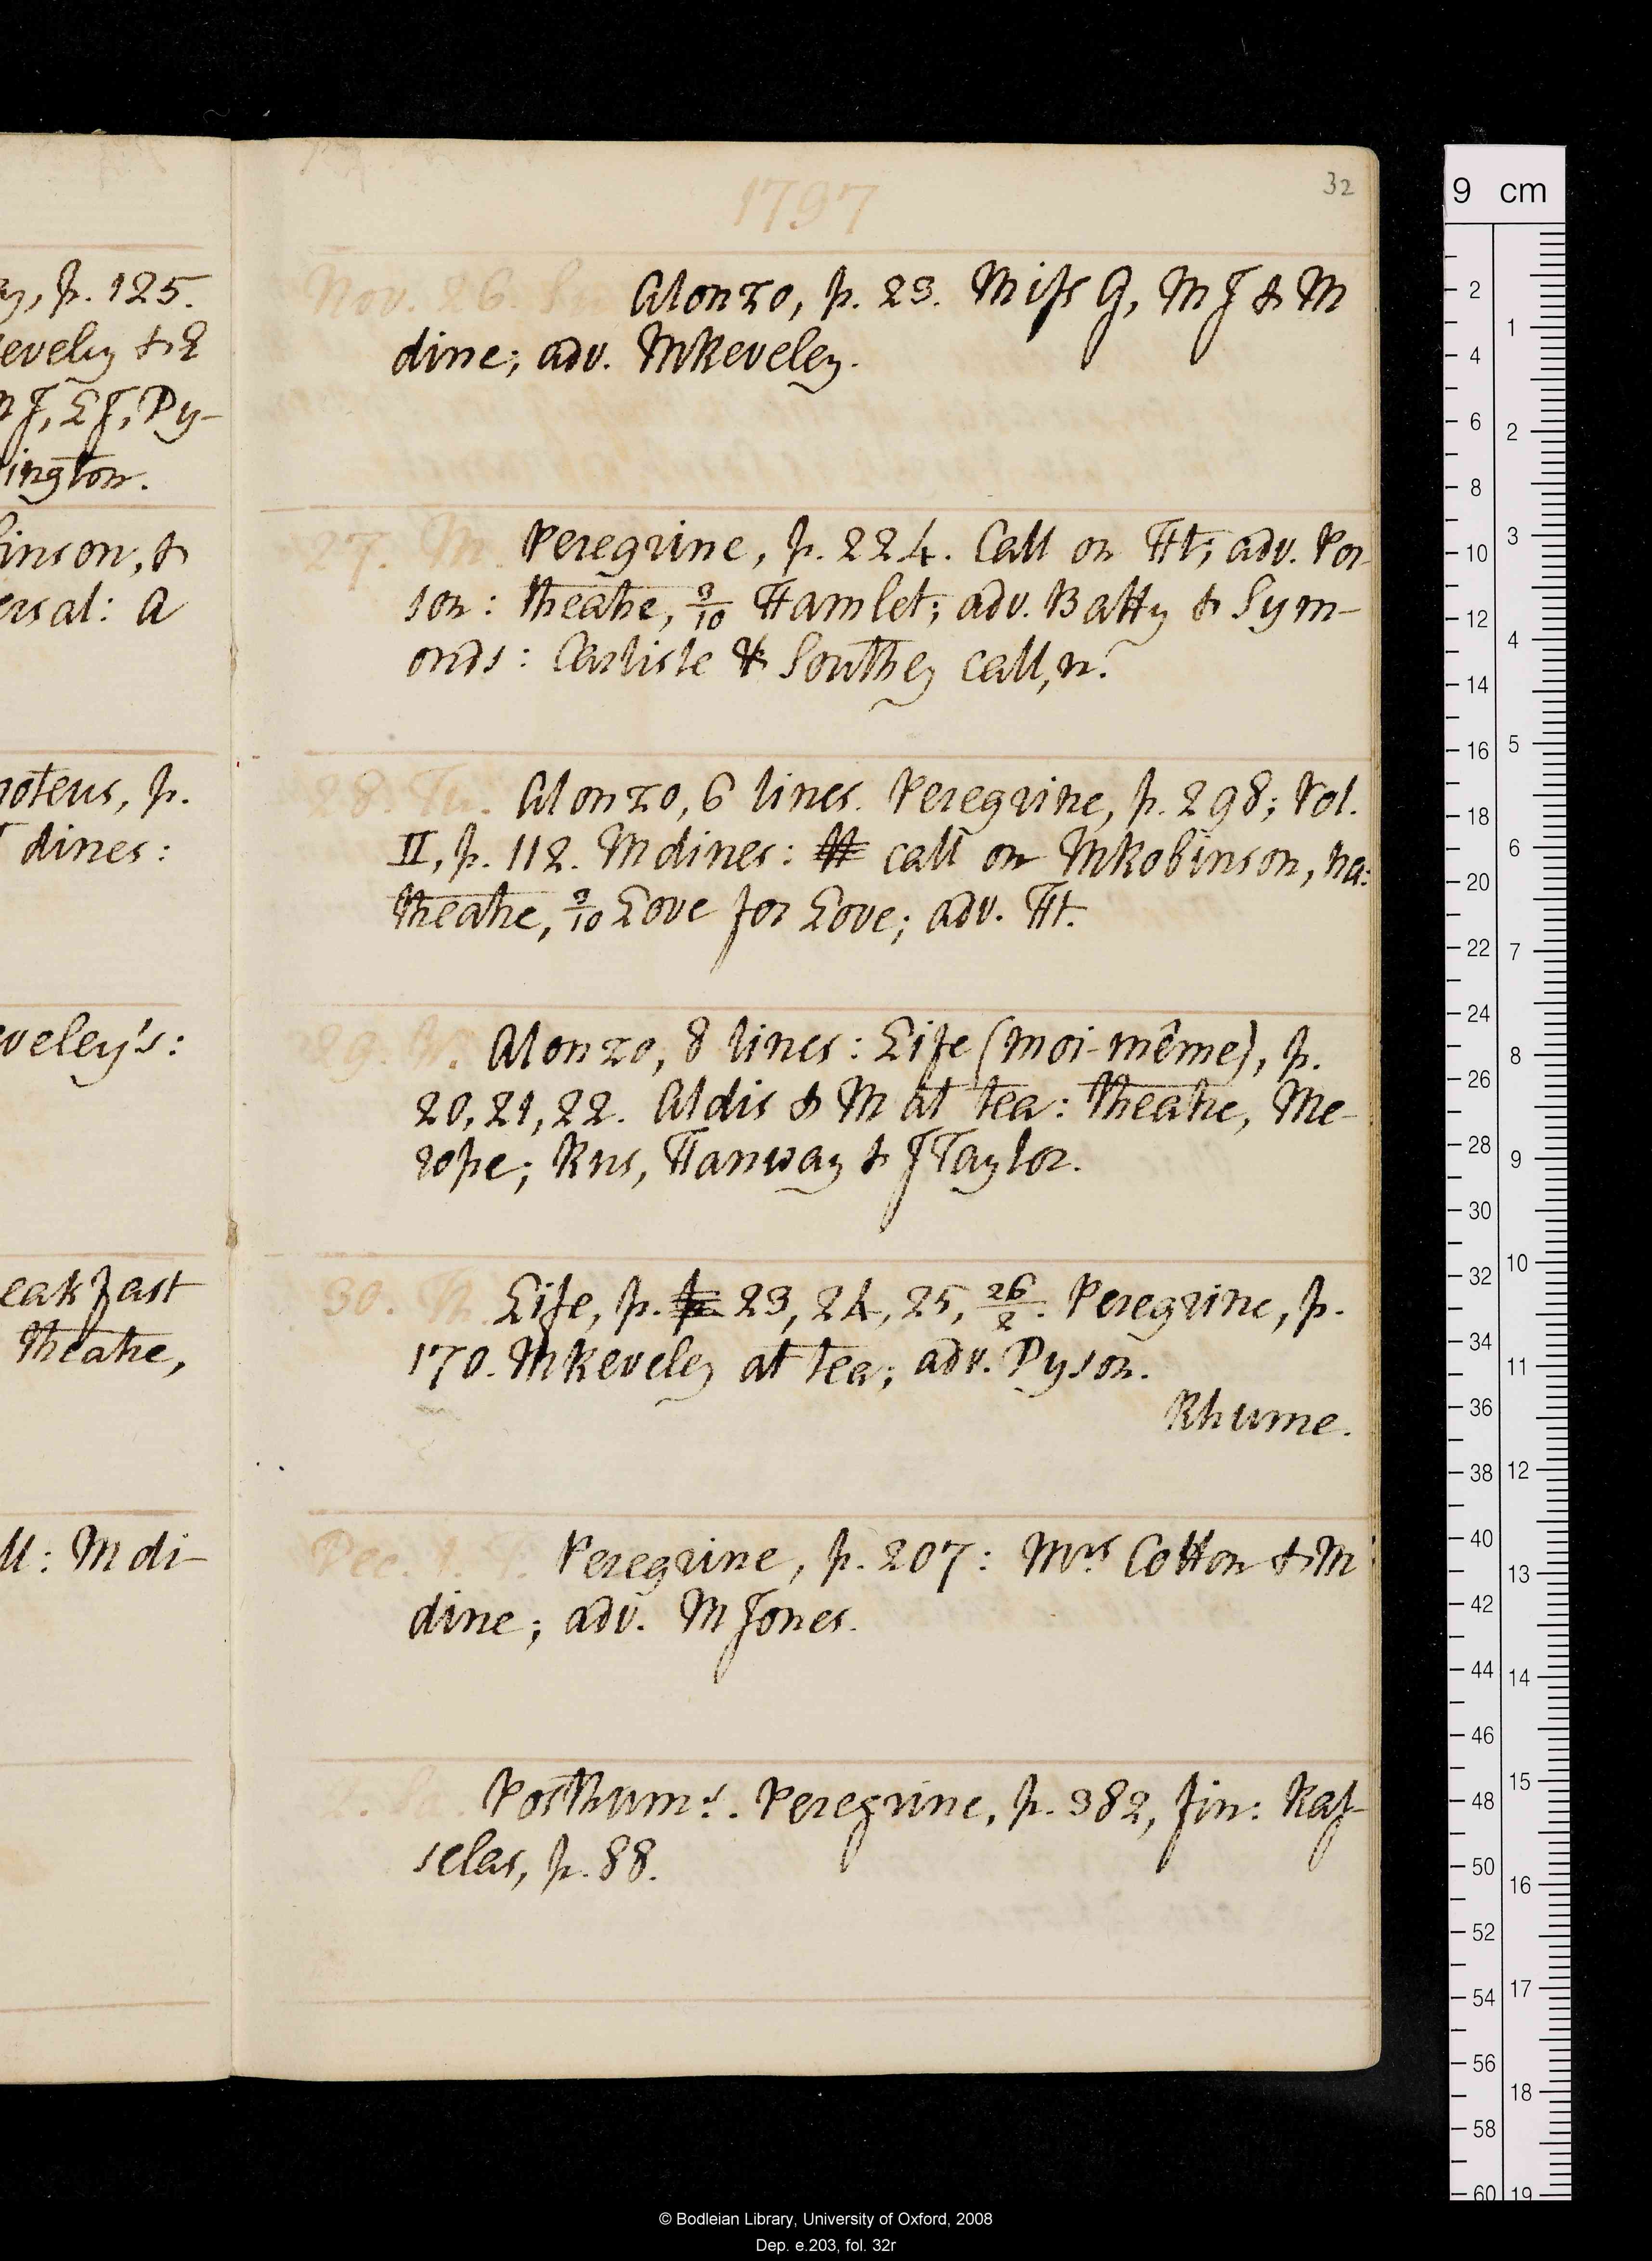 y, p. 125.
eveley & E
J, EJ, Dy-
ington.
inson, &
ersal: A
noteus, p.
dines:
veley's:
eakfast
Theatre,
ll: M di-
32
1797
Nov. 26. Su. Alonzo, p. 23. Miss G, M J & M
dine; adv. M Reveley.
27. M. Peregrine, p. 224. Call on Ht; adv. Por-
son: theatre, 3/10 Hamlet; adv. Batty & Sym-
onds: Carlisle & Southey call, n.
28. Tu. Alonzo, 6 lines. Peregrine, p. 298; Vol.
II, p. 112. M dines: call on M Robinson, na:
theatre, 3/10 Love for Love; adv. Ht.
29. W. Alonzo, 8 lines: Life (moi-même), p.
20, 21, 22. Aldis & M at tea: theatre, Me-
rope; Rns, Hanway & J Taylor.
30. Th. Life, p. 23, 24, 25, 26/2. Peregrine, p.
170. M Reveley at tea; adv. Dyson.
Rhume.
Dec. 1. F. Peregrine, p. 207: Mrs Cotton & M
dine; adv. M Jones.
2. Sa. Posthums. Peregrine, p. 382, fin: Ras-
selas, p. 88.
9 cm
2
4
6
8
10
12
14
16
18
20
22
24
26
28
30
32
34
36
38
40
42
44
46
48
50
52
54
56
58
60
1
2
3
4
5
6
7
8
9
10
11
12
13
14
15
16
17
18
19
© Bodleian Library, University of Oxford, 2008
Dep. e.203, fol. 32r